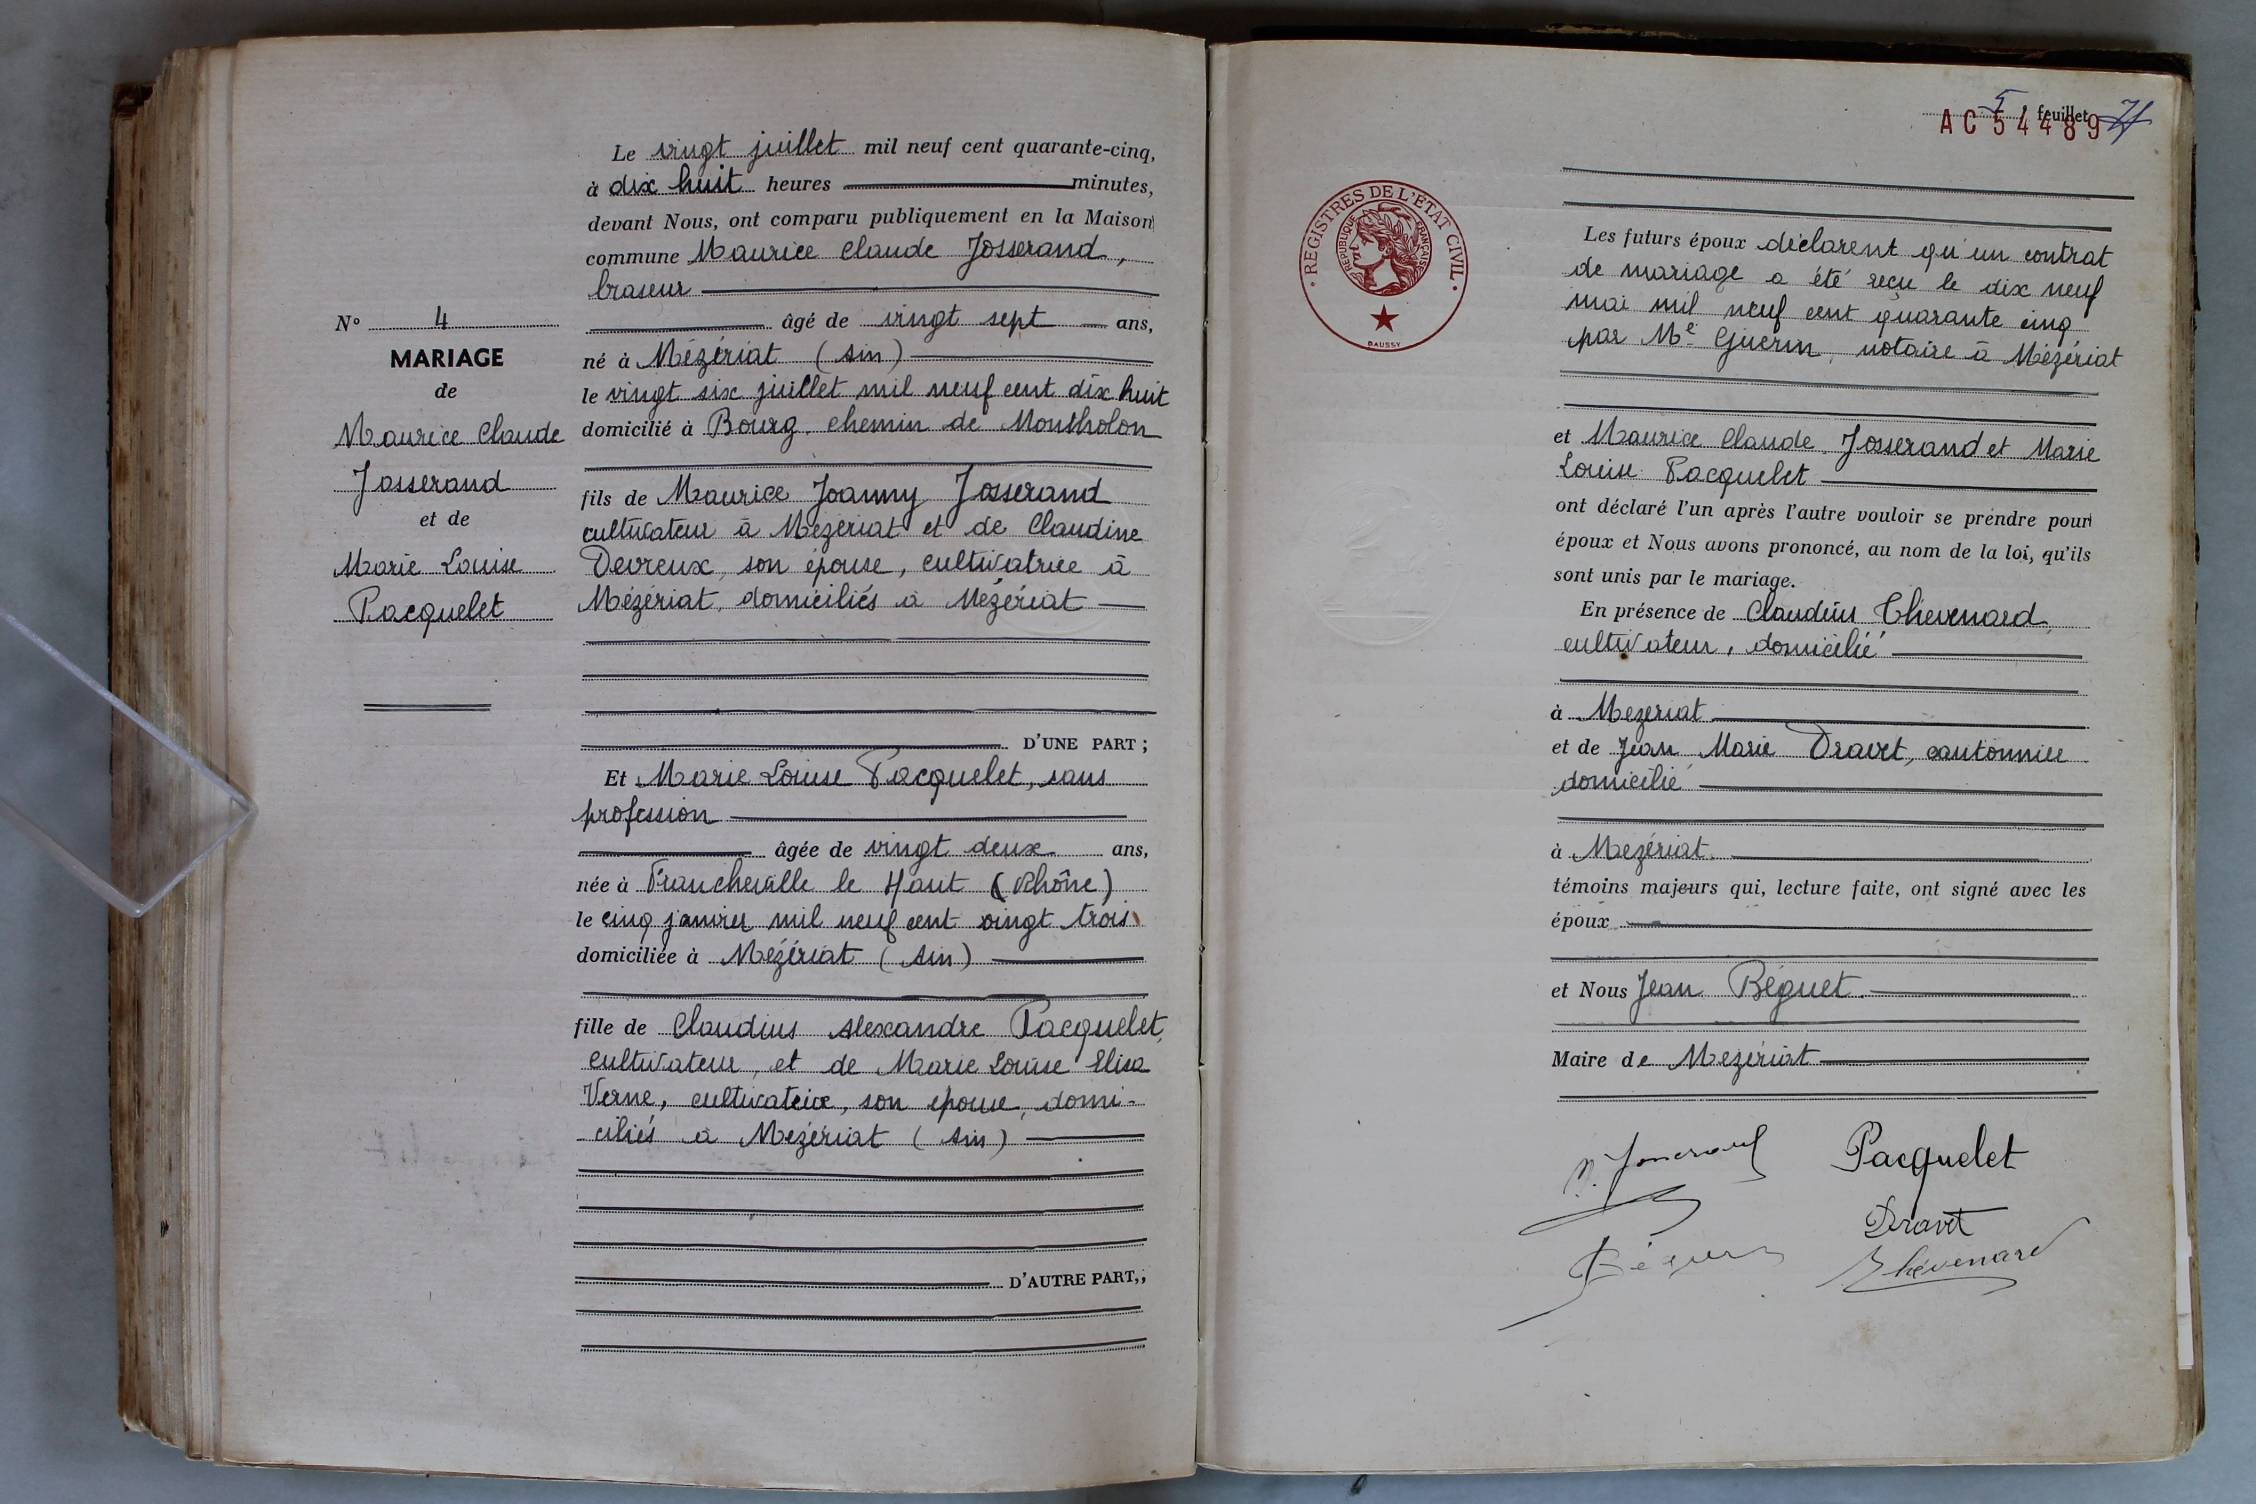 Le vingt juillet mil neuf cent quarante-cinq,
à dix huit heures minutes,
devant Nous, ont comparu publiquement en la Maison
commune Maurice Claude Josserand,
braseur
âgé de vingt sept ans,
né à Mézériat (Ain)
le vingt six juillet mil neuf cent dix huit
domicilié à Bourg. chemin de Montholon
fils de Maurice Joanny Josserand
cultivateur à Mézériat et de Claudine
Devreux, son épouse, cultivatrice à
Mézériat, domiciliés à Mézériat
D'UNE PART ;
Et Marie Louise Pacquelet, sans
profession
âgée de vingt deux ans,
née à Francheville le Haut (Rhône)
le cinq janvier mil neuf cent vingt trois
domiciliée à Mézériat (Ain)
fille de Claudius Alexandre Pacquelet,
cultivateur, et de Marie Louise Elisa
Verne, cultivatrice, son épouse, domi-
ciliés à Mézériat (Ain)
D'AUTRE PART,,
No 4
MARIAGE
de
Maurice Claude
Josserand
et de
Marie Louise
Pacquelet
feuillet
AC 54489
REGISTRES DE L'ETAT CIVIL
REPUBLIQUE FRANÇAISE
DAUSSY
Les futurs époux déclarent qu'un contrat
de mariage a été reçu le dix neuf
mai mil neuf cent quarante cinq
par Me Guerin, notaire à Mézériat
et Maurice Claude Josserand et Marie
Louise Pacquelet
ont déclaré l'un après l'autre vouloir se prendre pour
époux et Nous avons prononcé, au nom de la loi, qu'ils
sont unis par le mariage.
En présence de Claudius Thévenard,
cultivateur, domicilié
à Mezeriat
et de Jean Marie Dravet, cantonnier
domicilié
à Mezériat.
témoins majeurs qui, lecture faite, ont signé avec les
époux
et Nous Jean Béguet
Maire de Mezériat
M. Josserand
Pacquelet
Dravet
Béguet
Thévenard